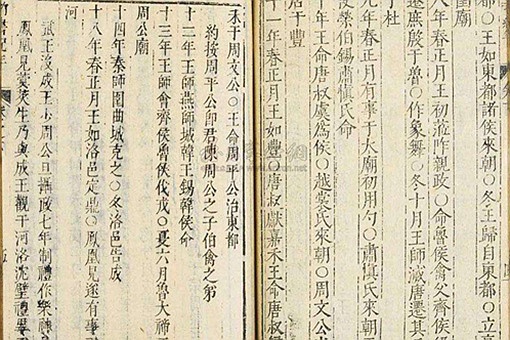 都〇王如東都諸侯來朝〇冬王歸自東都〇立高
圉廟
八年春正月王初涖阼親政〇命魯侯禽父齊侯
遷庶殷于魯〇作象舞〇冬十月王師滅唐遷其
于杜
元年春正月有事于大廟初用勺〇肅慎氏來朝
榮伯錫肅慎氏命
十年王命唐叔虞為侯〇越裳氏來朝〇周文公
居于豐
十一年春正月王如豐〇唐叔獻嘉禾王命唐叔
禾于周文公〇王命周平公治東都
約按周平公即君陳周公之子伯禽之弟
十二年王師燕師城韓王錫韓侯命
十三年王師會齊侯魯侯伐戎〇夏六月魯大禘于
周公廟
十四年春師圍曲城克之〇冬洛邑告成
十八年春正月王如洛邑定鼎〇鳳凰見遂有事
河
武王沒成王少周公旦攝政七年制禮作樂神
鳳凰見蓂莢生乃與成王觀于河洛沈璧禮畢王